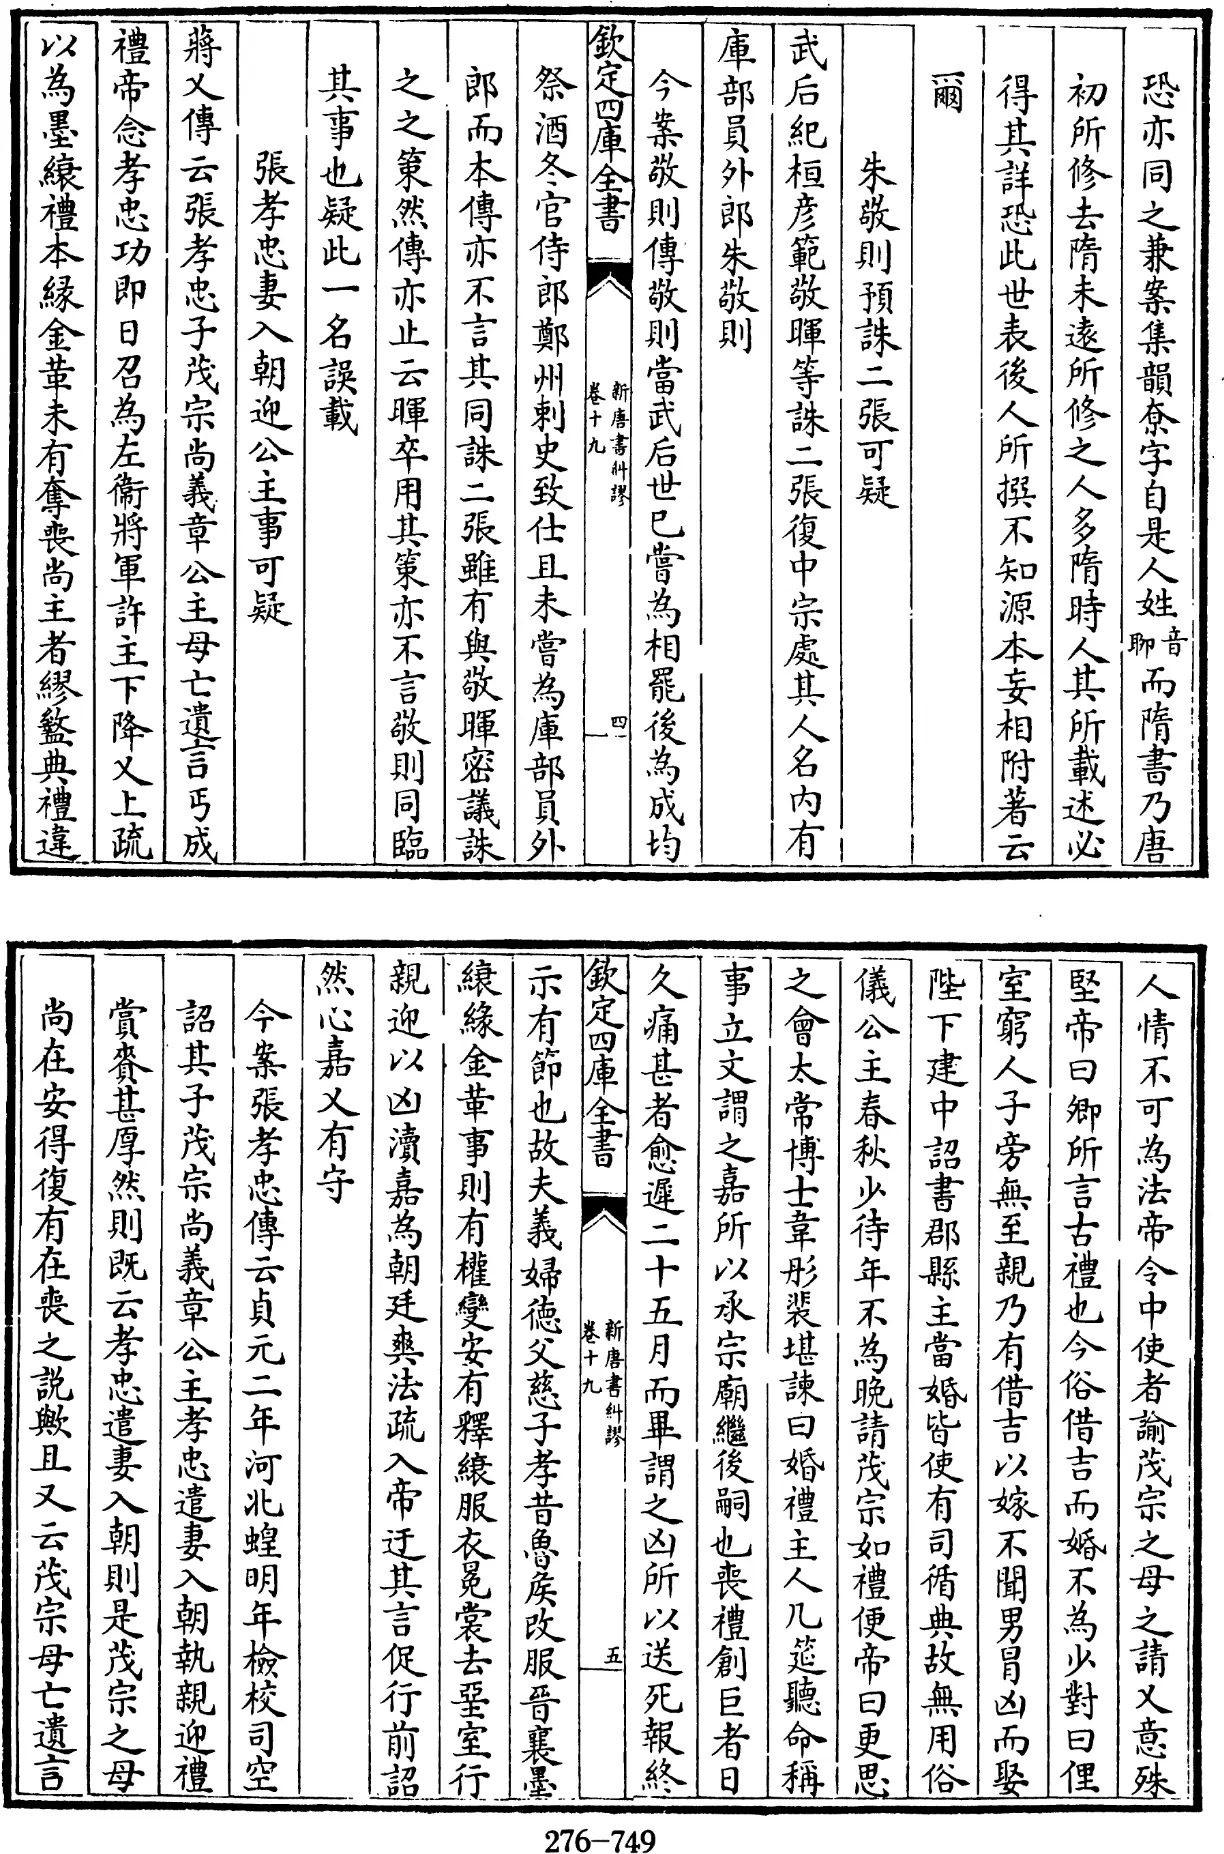 恐亦同之兼案集韻尞字自是人姓音聊而隋書乃唐
初所修去隋未遠所修之人多隋時人其所載述必
得其詳恐此世表後人所撰不知源本妄相附著云
爾
朱敬則預誅二張可疑
武后紀桓彦範敬暉等誅二張復中宗處其人名内有
庫部員外郎朱敬則
今案敬則傳敬則當武后世已嘗為相罷後為成均
欽定四庫全書
新唐書糾謬
卷十九
四
祭酒冬官侍郎鄭州刺史致仕且未嘗為庫部員外
郎而本傳亦不言其同誅二張雖有與敬暉密議誅
之之策然傳亦止云暉卒用其策亦不言敬則同臨
其事也疑此一名誤載
張孝忠妻入朝迎公主事可疑
蔣乂傳云張孝忠子茂宗尚義章公主母亡遺言丐成
禮帝念孝忠功即日召為左衞將軍許主下降乂上疏
以為墨縗禮本緣金革未有奪喪尚主者繆盭典禮違
人情不可為法帝令中使者諭茂宗之母之請乂意殊
堅帝曰卿所言古禮也今俗借吉而婚不為少對曰俚
室窮人子旁無至親乃有借吉以嫁不聞男冒凶而娶
陛下建中詔書郡縣主當婚皆使有司循典故無用俗
儀公主春秋少待年不為晚請茂宗如禮便帝曰更思
之會太常博士韋彤裴堪諫曰婚禮主人几筵聽命稱
事立文謂之嘉所以承宗廟繼後嗣也喪禮創巨者日
久痛甚者愈遲二十五月而畢謂之凶所以送死報終
欽定四庫全書
新唐書糾謬
卷十九
五
示有節也故夫義婦德父慈子孝昔魯矦改服晉襄墨
縗緣金革事則有權變安有釋縗服衣冕裳去堊室行
親迎以凶瀆嘉為朝廷爽法疏入帝迂其言促行前詔
然心嘉乂有守
今案張孝忠傳云貞元二年河北蝗明年檢校司空
詔其子茂宗尚義章公主孝忠遣妻入朝執親迎禮
賞賚甚厚然則既云孝忠遣妻入朝則是茂宗之母
尚在安得復有在喪之説歟且又云茂宗母亡遺言
276-749